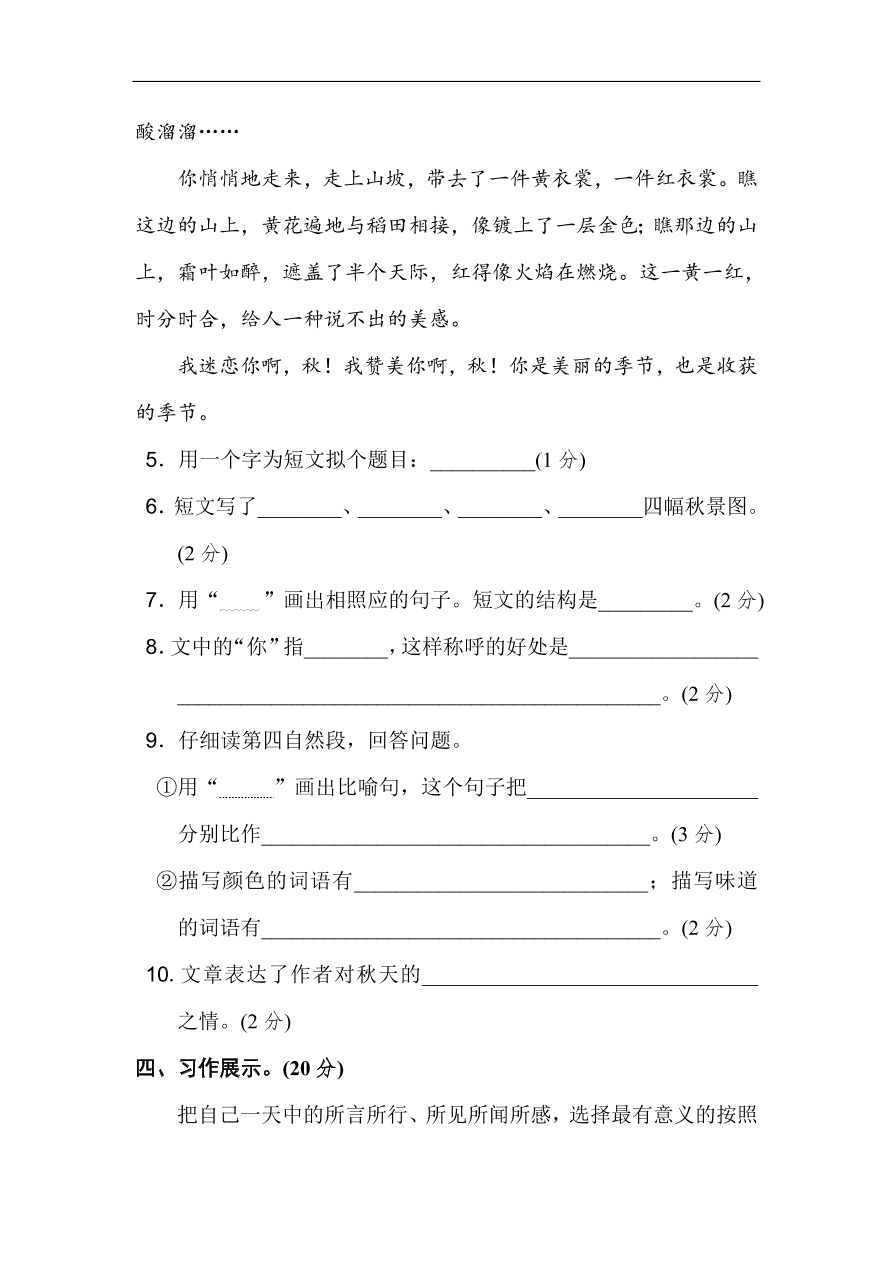 酸溜溜……
你悄悄地走来，走上山坡，带去了一件黄衣裳，一件红衣裳。瞧
这边的山上，黄花遍地与稻田相接，像镀上了一层金色；瞧那边的山
上，霜叶如醉，遮盖了半个天际，红得像火焰在燃烧。这一黄一红，
时分时合，给人一种说不出的美感。
我迷恋你啊，秋！我赞美你啊，秋！你是美丽的季节，也是收获
的季节。
5．用一个字为短文拟个题目：__________(1 分)
6．短文写了________、________、________、________四幅秋景图。
(2 分)
7．用“____”画出相照应的句子。短文的结构是_________。(2 分)
8．文中的“你”指________，这样称呼的好处是__________________
______________________________________________。(2 分)
9．仔细读第四自然段，回答问题。
①用“______”画出比喻句，这个句子把______________________
分别比作_____________________________________。(3 分)
②描写颜色的词语有____________________________；描写味道
的词语有______________________________________。(2 分)
10. 文章表达了作者对秋天的________________________________
之情。(2 分)
四、习作展示。(20 分)
把自己一天中的所言所行、所见所闻所感，选择最有意义的按照